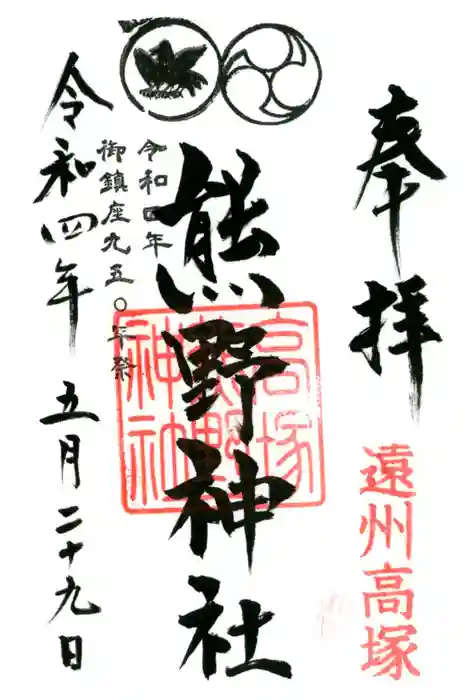 奉拝
遠州高塚
熊野神社
高塚
熊野
神社
令和四年
御鎮座九五〇年祭
令和四年五月二十九日